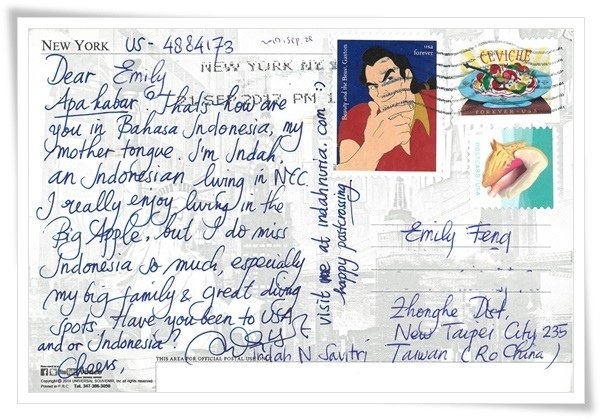 NEW YORK US - 4884173
NEW YORK NY
SEP 2017 PM 1
Dear Emily
Apa kabar? That's how are
you in Bahasa Indonesia, my
mother tongue. I'm Indah,
an Indonesian living in NYC.
I really enjoy living in the
Big Apple, but I do miss
Indonesia so much, especially
my big family & great diving
spots. Have you been to USA
and/or Indonesia?
Cheers,
Indah N Savitri
visit me at indahnuria.com :)
happy postcrossing
Beauty and the Beast, Gaston
usa
forever
CEVICHE
FOREVER • USA
POSTCARD
Emily Feng
Zhonghe Dist,
New Taipei City 235
Taiwan (Ro China)
THIS AREA FOR OFFICIAL POSTAL USE
Copyright © 2014 UNIVERSAL SOUVENIR, Inc all rights reserved.
Printed in P.R.C Tel. 347-386-3098